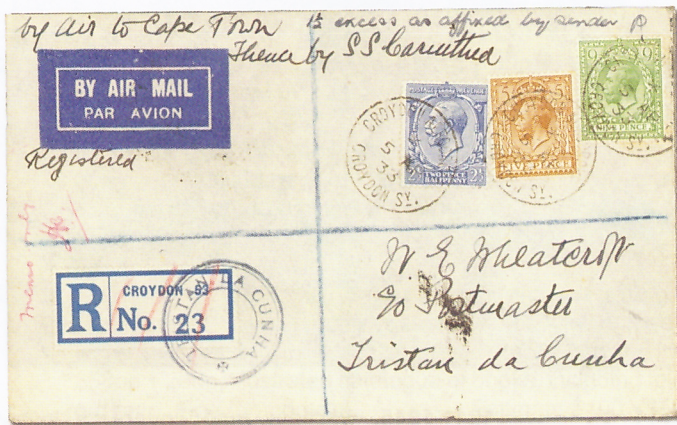 by air to Cape Town
1½ excess as affixed by sender
Thence by S S Carinthia
BY AIR MAIL
PAR AVION
Registered
POSTAGE REVENUE
TWO PENCE
HALFPENNY
2½ 2½
5 5
FIVE PENCE
9 9
NINE PENCE
CROYDON
5 JA
33
CROYDON SY.
memo only
R
CROYDON 63
No. 23
TRISTAN DA CUNHA
W E Wheatcroft
c/o Postmaster
Tristan da Cunha